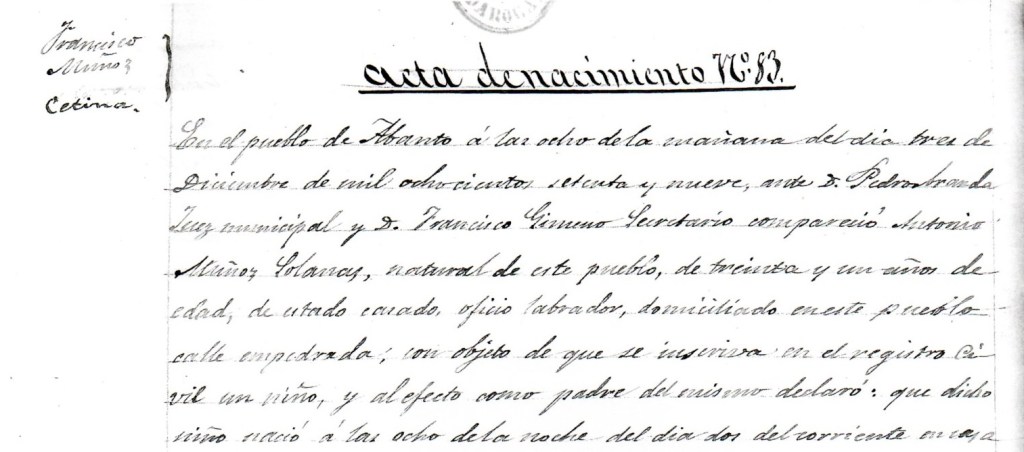 DAROCA
Francisco
Muñoz
Cetina.
Acta de nacimiento Nº 83.
En el pueblo de Abanto á las ocho de la mañana del dia tres de
Diciembre de mil ochocientos setenta y nueve, ante D. Pedro Aranda
Juez municipal y D. Francisco Gimeno Secretario compareció Antonio
Muñoz Solanas, natural de este pueblo, de treinta y un años de
edad, de estado casado, oficio labrador, domiciliado en este pueblo
calle empedrada; con objeto de que se inscriva en el registro Ci-
vil un niño, y al efecto como padre del mismo declaró: que dicho
niño nació á las ocho de la noche del dia dos del corriente en casa